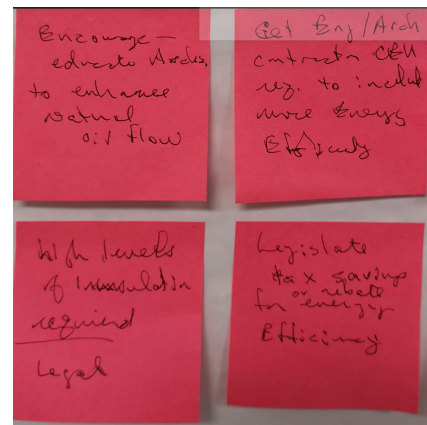 Encourage —
educate Archs,
to enhance
natural
air flow
Get Eng/Arch
contractr CEU
req. to includ
more Energy
Efficiency
high levels
of insulation
required
Legal
Legislate
tax savings
or rebate
for energy
Efficiency